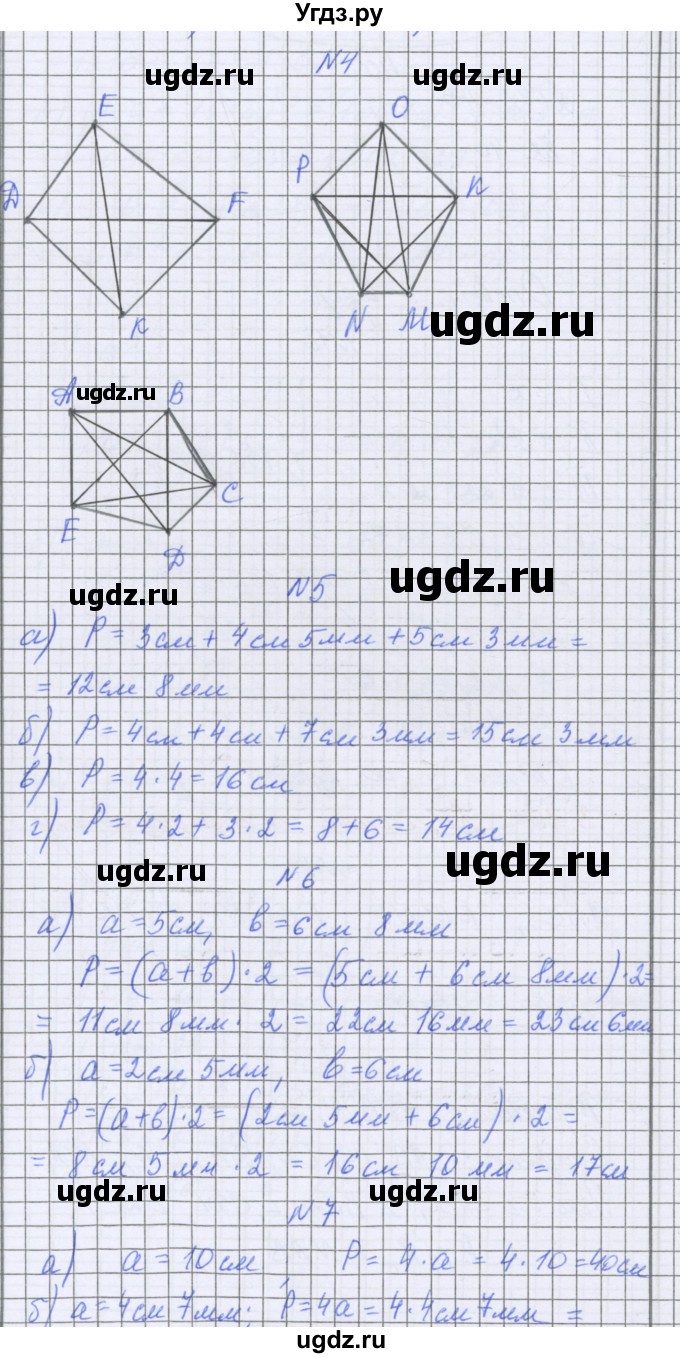 Угдз.ру
N4
ugdz.ru ugdz.ru
E O
P K
D F
K
N M
ugdz.ru
A ugdz.ru B
C
E
D
ugdz.ru
N5
ugdz.ru
а) P = 3см + 4см 5мм + 5см 3мм =
= 12см 8мм
б) P = 4см + 4см + 7см 3мм = 15см 3мм
в) P = 4 · 4 = 16см
г) P = 4 · 2 + 3 · 2 = 8 + 6 = 14см
ugdz.ru ugdz.ru
N6
а) a = 5см, в = 6см 8мм
P = (a + в) · 2 = (5см + 6см 8мм) · 2 =
= 11см 8мм · 2 = 22см 16мм = 23см 6мм
б) a = 2см 5мм, в = 6см
P = (a + в) · 2 = (2см 5мм + 6см) · 2 =
= 8см 5мм · 2 = 16см 10мм = 17см
ugdz.ru ugdz.ru
N7
а) a = 10см P = 4 · a = 4 · 10 = 40см
б) a = 4см 7мм; P = 4a = 4 · 4см 7мм =
ugdz.ru